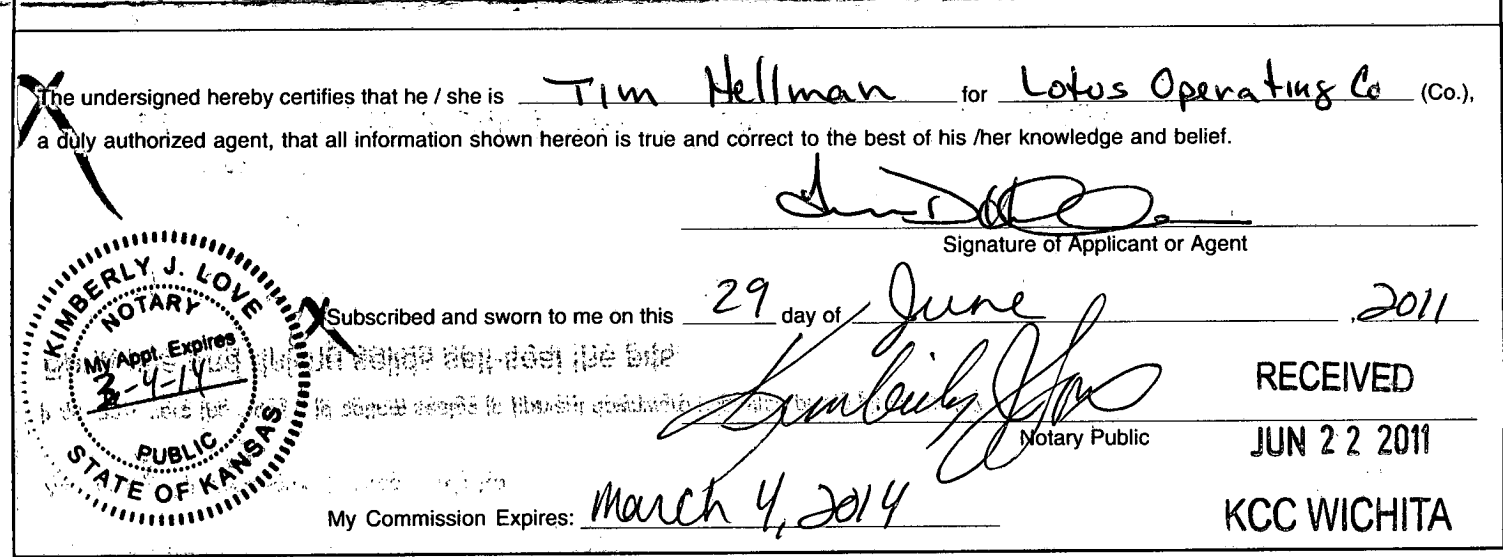 The undersigned hereby certifies that he / she is Tim Hellman for Lotus Operating Co (Co.),
a duly authorized agent, that all information shown hereon is true and correct to the best of his /her knowledge and belief.
Signature of Applicant or Agent
KIMBERLY J. LOVE
NOTARY
My Appt. Expires
3-4-14
PUBLIC
STATE OF KANSAS
Subscribed and sworn to me on this 29 day of June, 2011
Kimberly J Love
Notary Public
RECEIVED
JUN 22 2011
KCC WICHITA
My Commission Expires: March 4, 2014